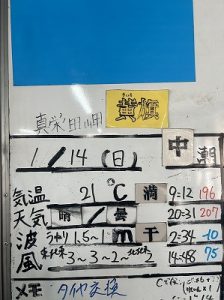 真栄田岬
黄旗
1/14(日) 中潮
気温 21℃ 満 9:12 196
天気 晴/曇 20:31
波 うねり 1.5~1m 干 2:34 -10
風 3~3~2 14:48 75
メモ タイヤ交換